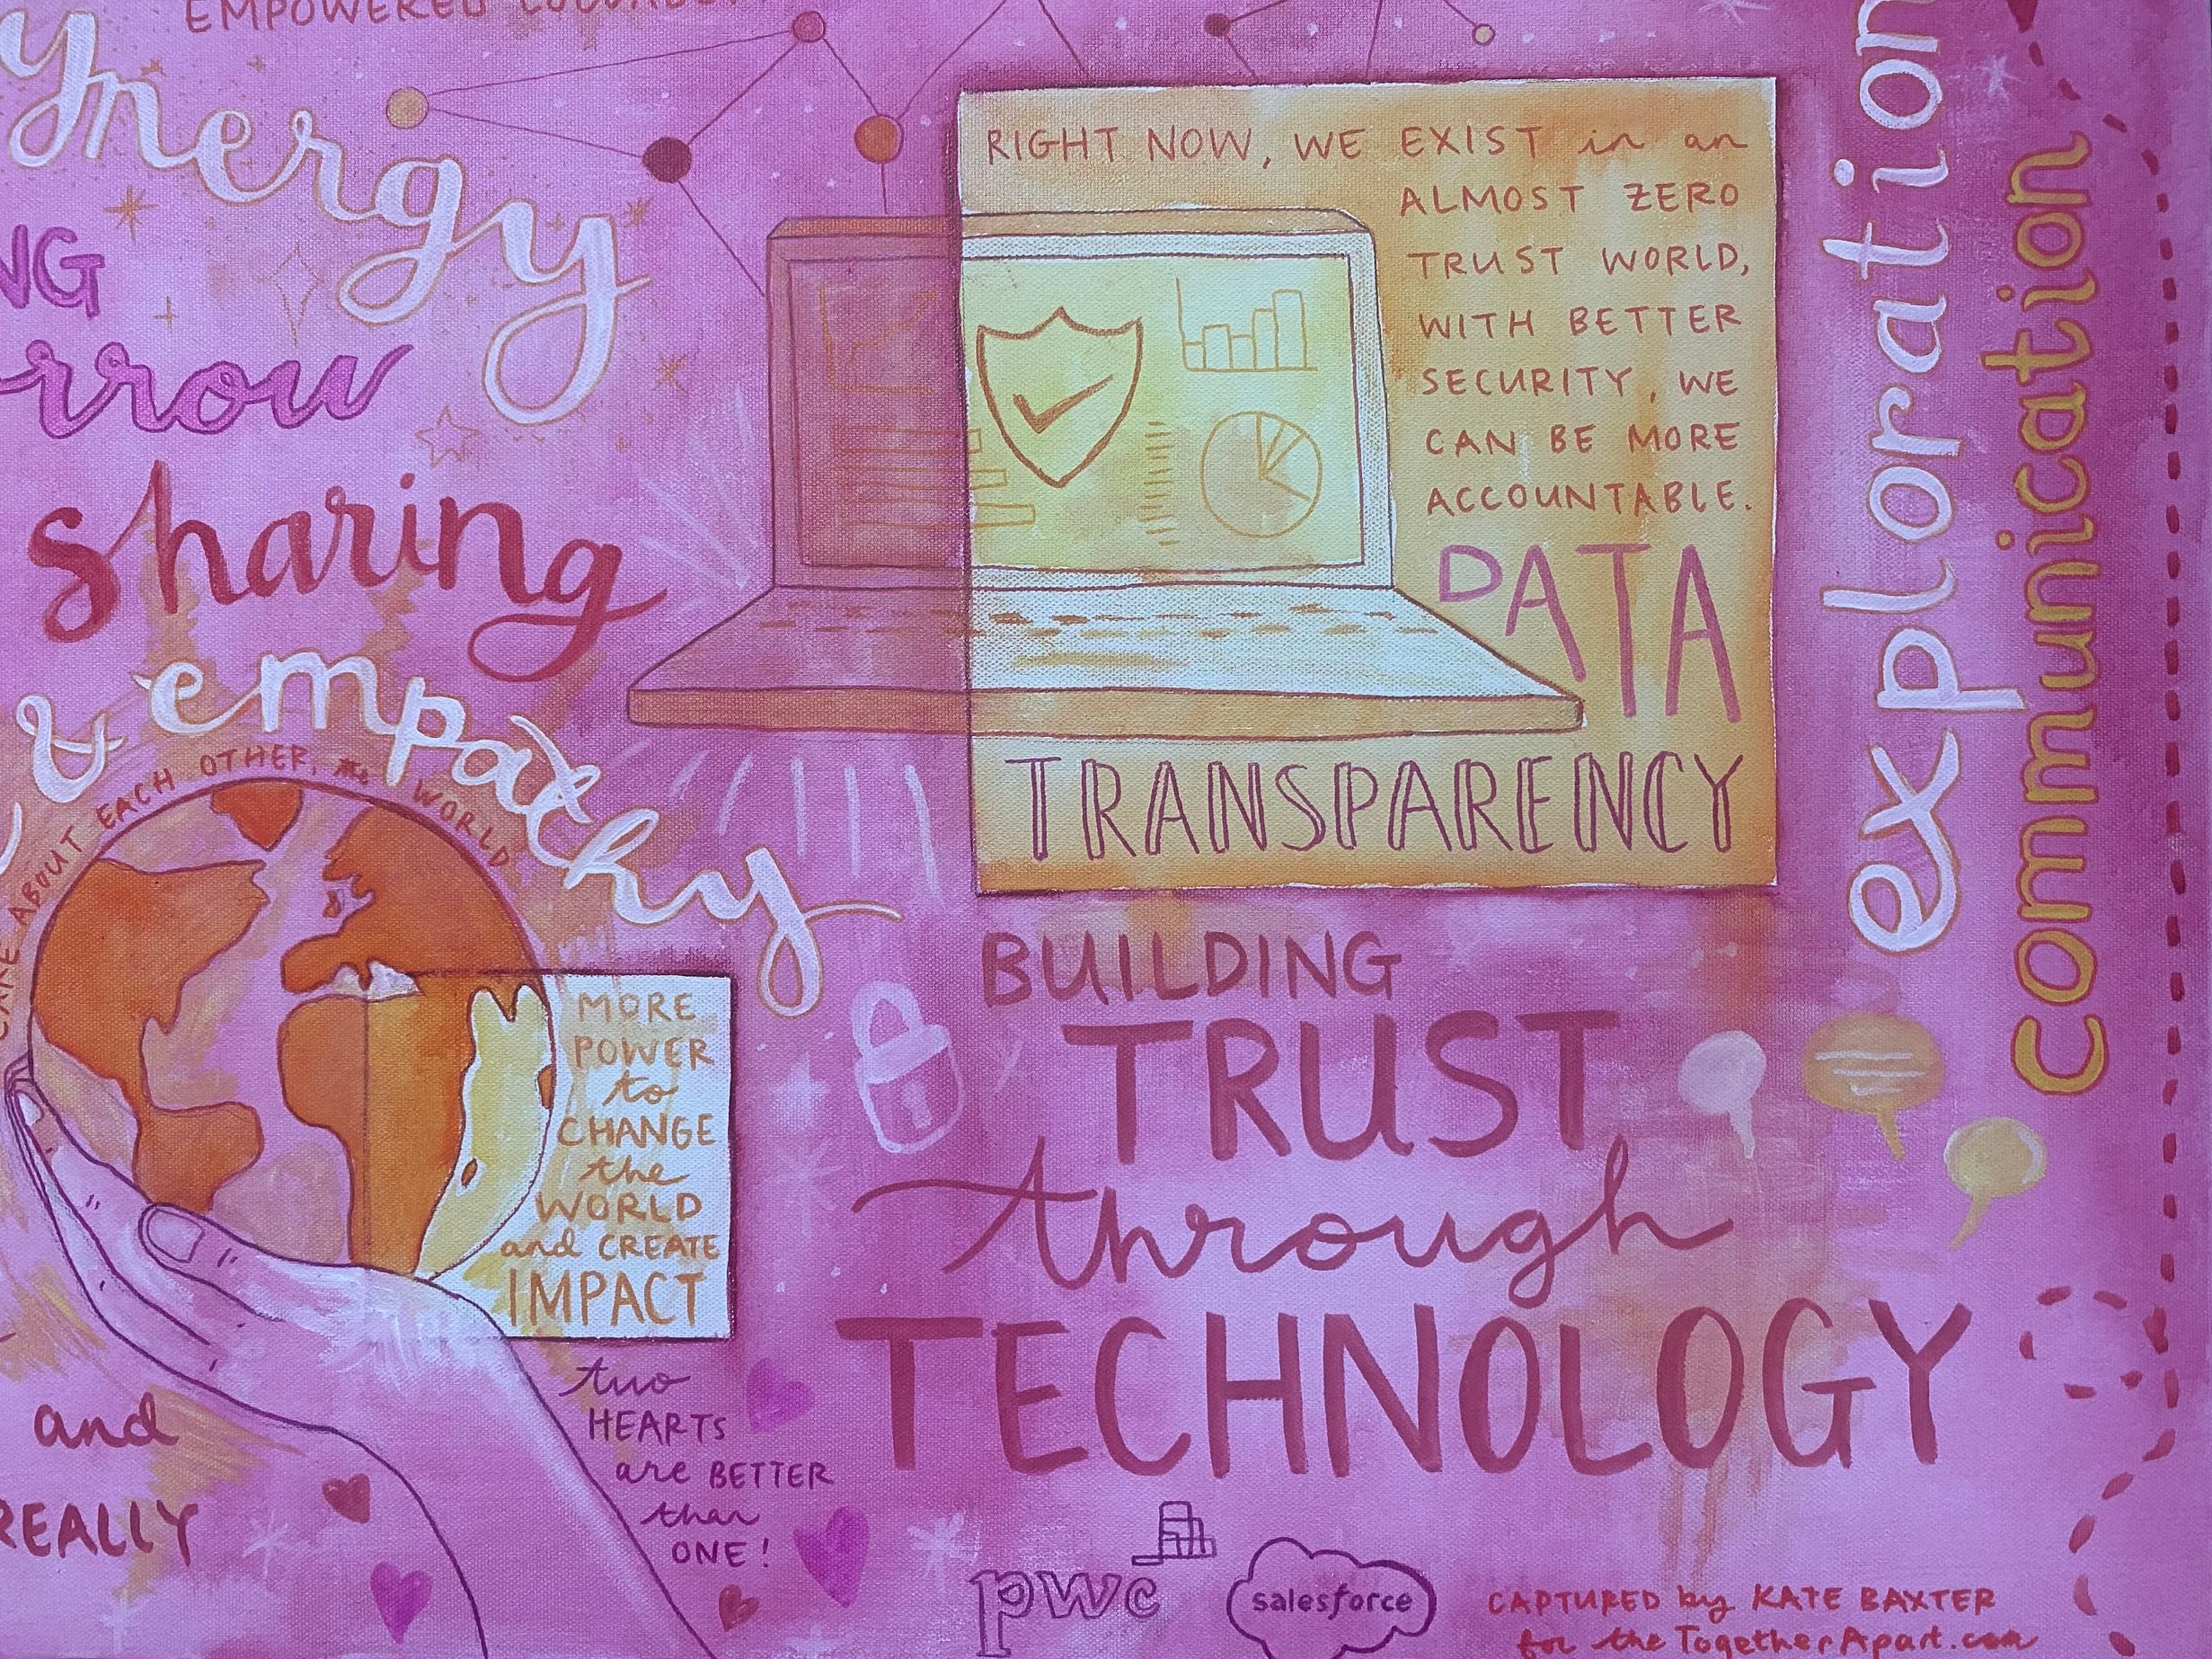 EMPOWERED
synergy
NG
rrow
sharing
& empathy
CARE ABOUT EACH OTHER, the WORLD
MORE
POWER
to
CHANGE
the
WORLD
and CREATE
IMPACT
and
REALLY
two
HEARTS
are BETTER
than
ONE!
RIGHT NOW, WE EXIST in an
ALMOST ZERO
TRUST WORLD,
WITH BETTER
SECURITY, WE
CAN BE MORE
ACCOUNTABLE.
DATA
TRANSPARENCY
BUILDING
TRUST
through
TECHNOLOGY
exploration
communication
pwc
salesforce
CAPTURED by KATE BAXTER
for the TogetherApart.com